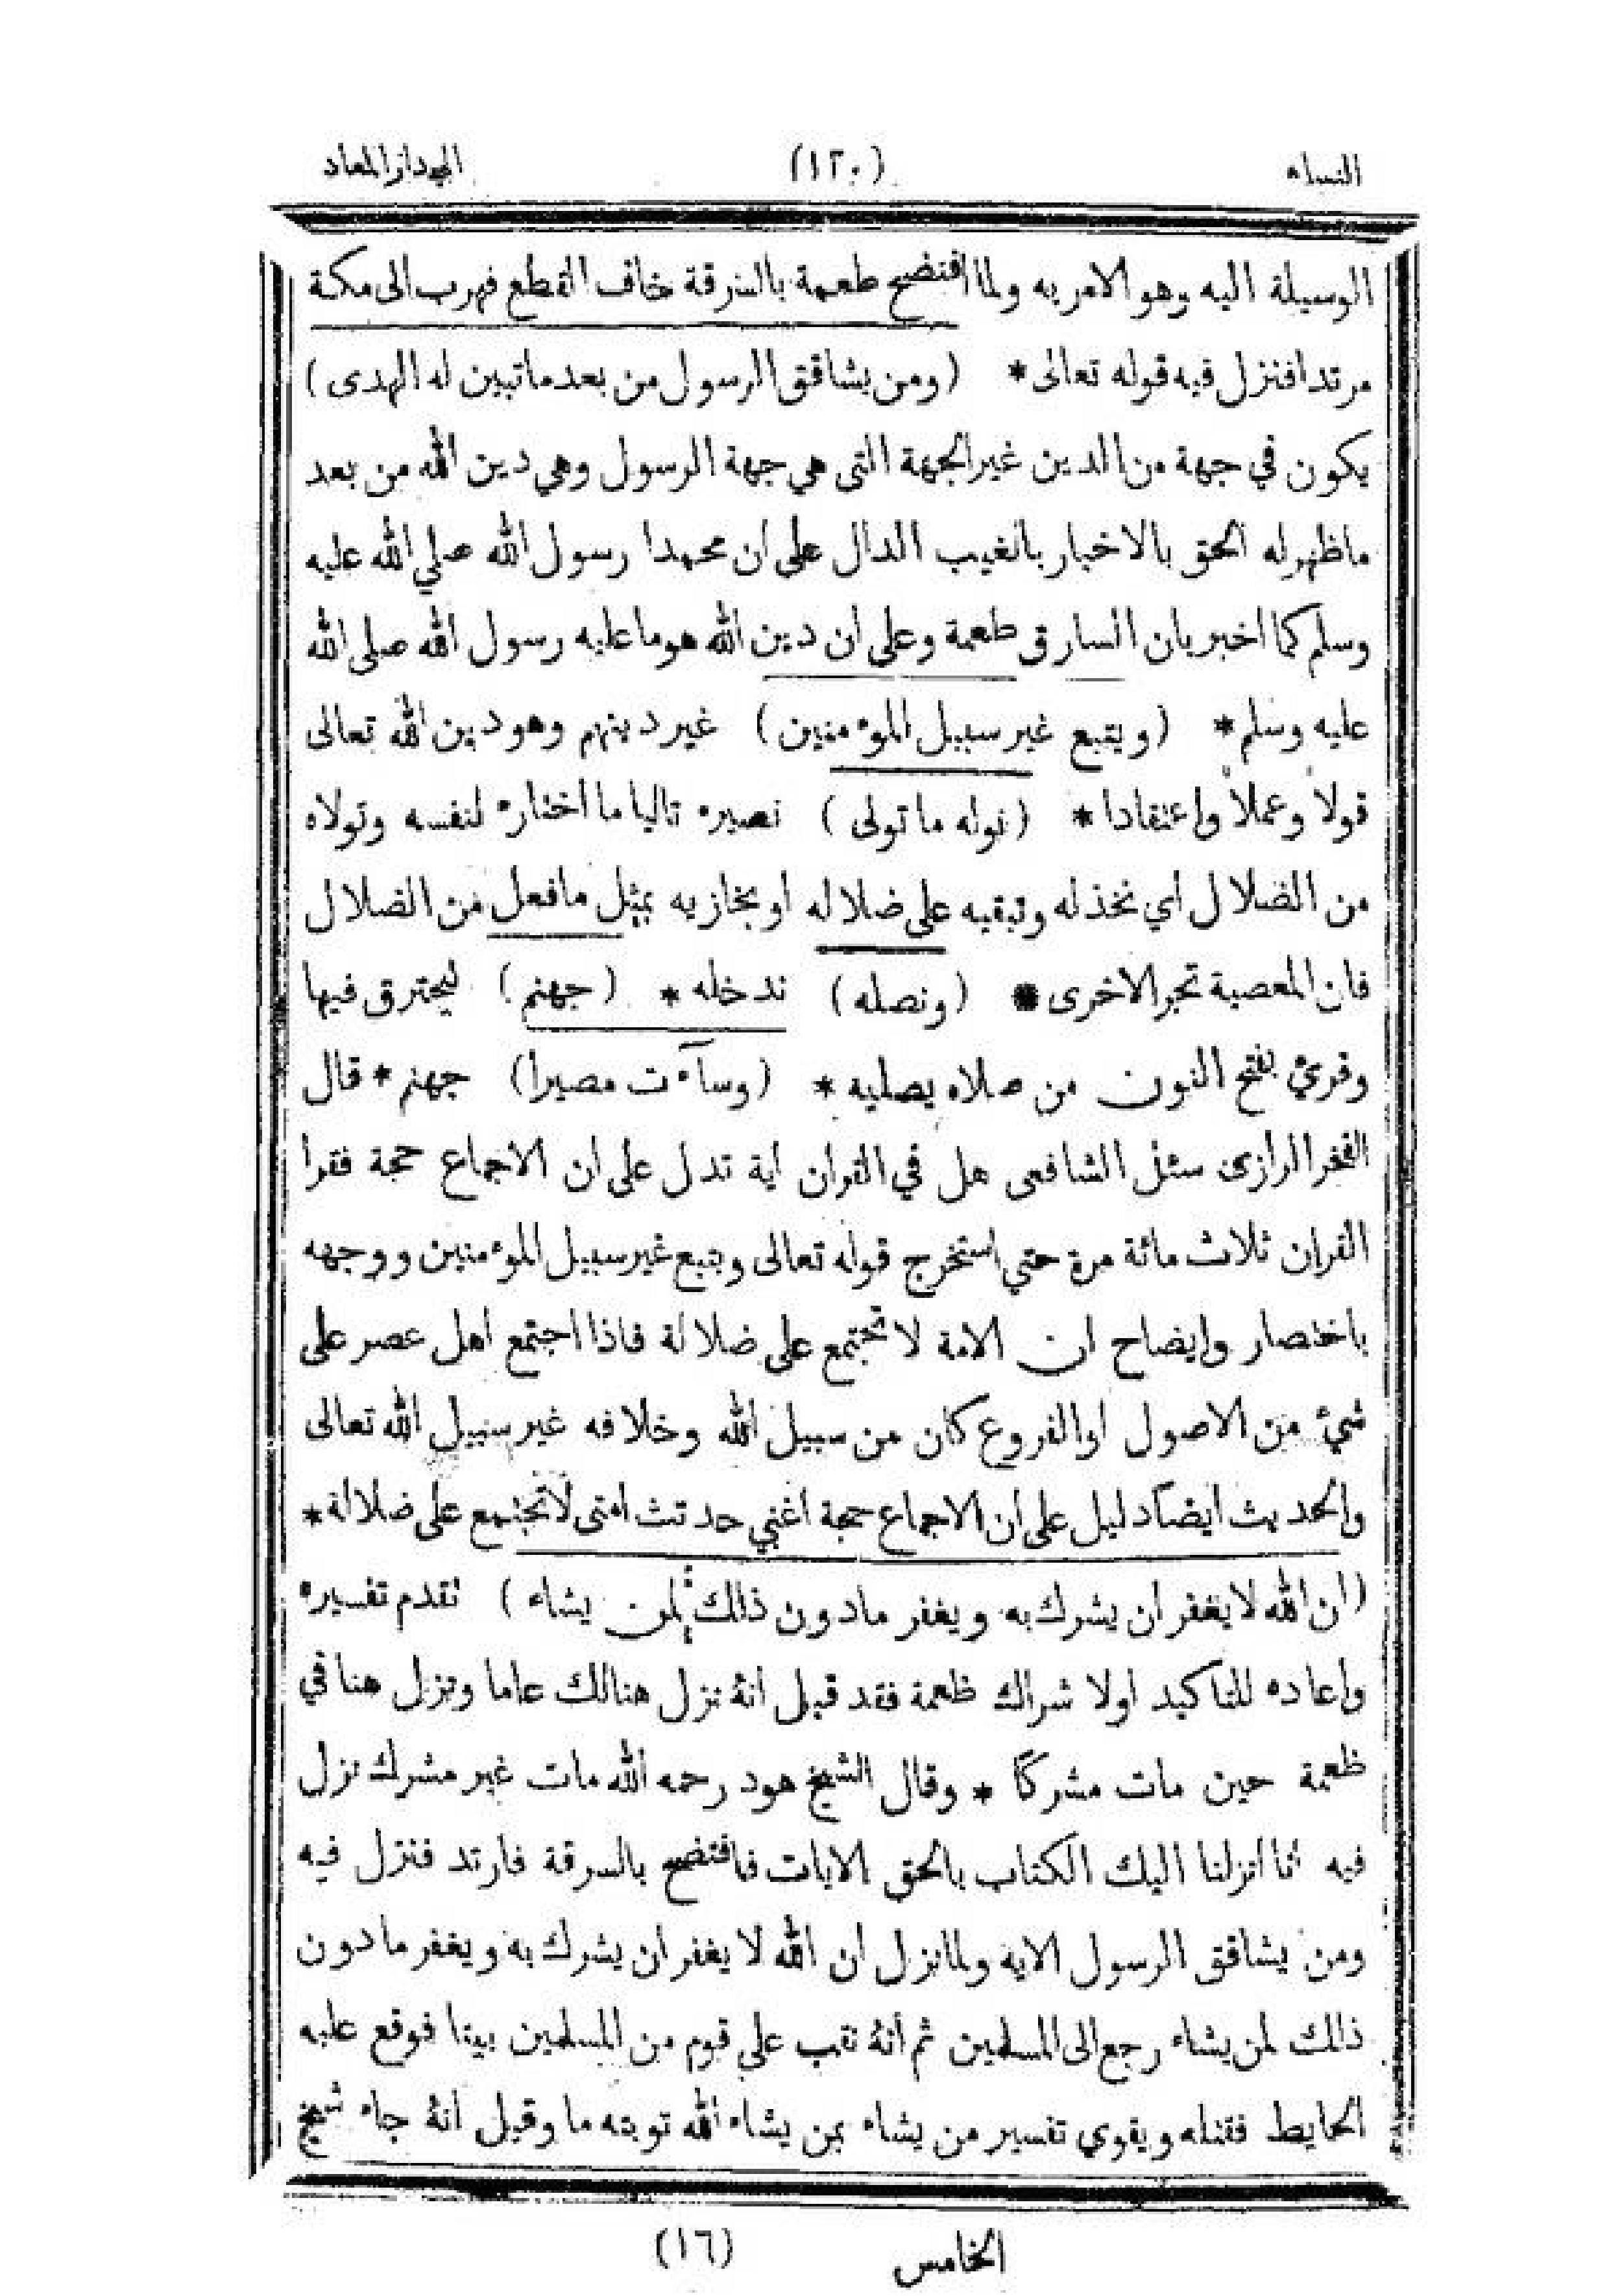 النساء (١٢٠) الى دار المعاد
الوسيلة اليه وهو الامر به ولما افتضح طعمة بالسرقة خاف القطع فهرب الى مكة
مرتدا فنزل فيه قوله تعالى * (ومن يشاقق الرسول من بعد ما تبين له الهدى)
يكون في جهة من الدين غير الجهة التى هي جهة الرسول وهي دين الله من بعد
ما ظهر له الحق بالاخبار بالغيب الدال على ان محمدا رسول الله صلي الله عليه
وسلم كما اخبر بان السارق طعمة وعلى ان دين الله هو ما عليه رسول الله صلى الله
عليه وسلم * (ويتبع غير سبيل المؤمنين) غير دينهم وهو دين الله تعالى
قولا وعملا واعتقادا * (نوله ما تولى) نصيره تاليا ما اختاره لنفسه وتولاه
من الضلال اي نخذله ونبقيه على ضلاله او نجازيه بمثل ما فعل من الضلال
فان المعصية تجر الاخرى * (ونصله) ندخله * (جهنم) ليحترق فيها
وقرئ بفتح النون من صلاه يصليه * (وسآءت مصيرا) جهنم * قال
الفخر الرازى سئل الشافعى هل في القران اية تدل على ان الاجماع حجة فقرا
القران ثلاث مائة مرة حتي استخرج قوله تعالى ويتبع غير سبيل المؤمنين ووجهه
باختصار وايضاح ان الامة لا تجتمع على ضلالة فاذا اجتمع اهل عصر على
شئ من الاصول او الفروع كان من سبيل الله وخلافه غير سبيل الله تعالى
والحديث ايضا دليل على ان الاجماع حجة اغني حديث امتى لا تجتمع على ضلالة *
(ان الله لا يغفر ان يشرك به ويغفر ما دون ذلك لمن يشاء) تقدم تفسيره
واعاده للتاكيد اولا شراك طعمة فقد قيل انه نزل هنالك عاما ونزل هنا في
طعمة حين مات مشركا * وقال الشيخ هود رحمه الله مات غير مشرك نزل
فيه انا انزلنا اليك الكتاب بالحق الايات فافتضح بالسرقة فارتد فنزل فيه
ومن يشاقق الرسول الاية ولما نزل ان الله لا يغفر ان يشرك به ويغفر ما دون
ذلك لمن يشاء رجع الى المسلمين ثم انه نقب علي قوم من المسلمين بيتا فوقع عليه
الحايط فقتله ويقوي تفسير من يشاء بمن يشاء الله توبته ما وقيل انه جاء شيخ
الخامس (١٦)